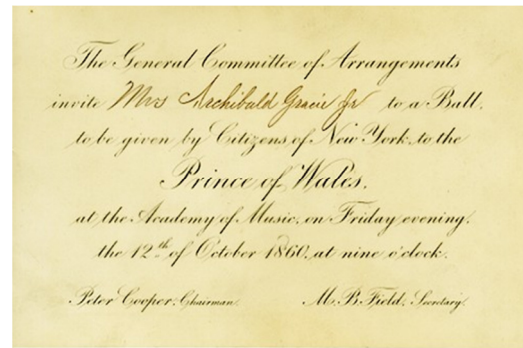 The General Committee of Arrangements
invite Mrs Archibald Gracie Jr to a Ball,
to be given by Citizens of New York to the
Prince of Wales,
at the Academy of Music, on Friday evening,
the 12th of October 1860, at nine o'clock.
Peter Cooper, Chairman. M. B. Field, Secretary.